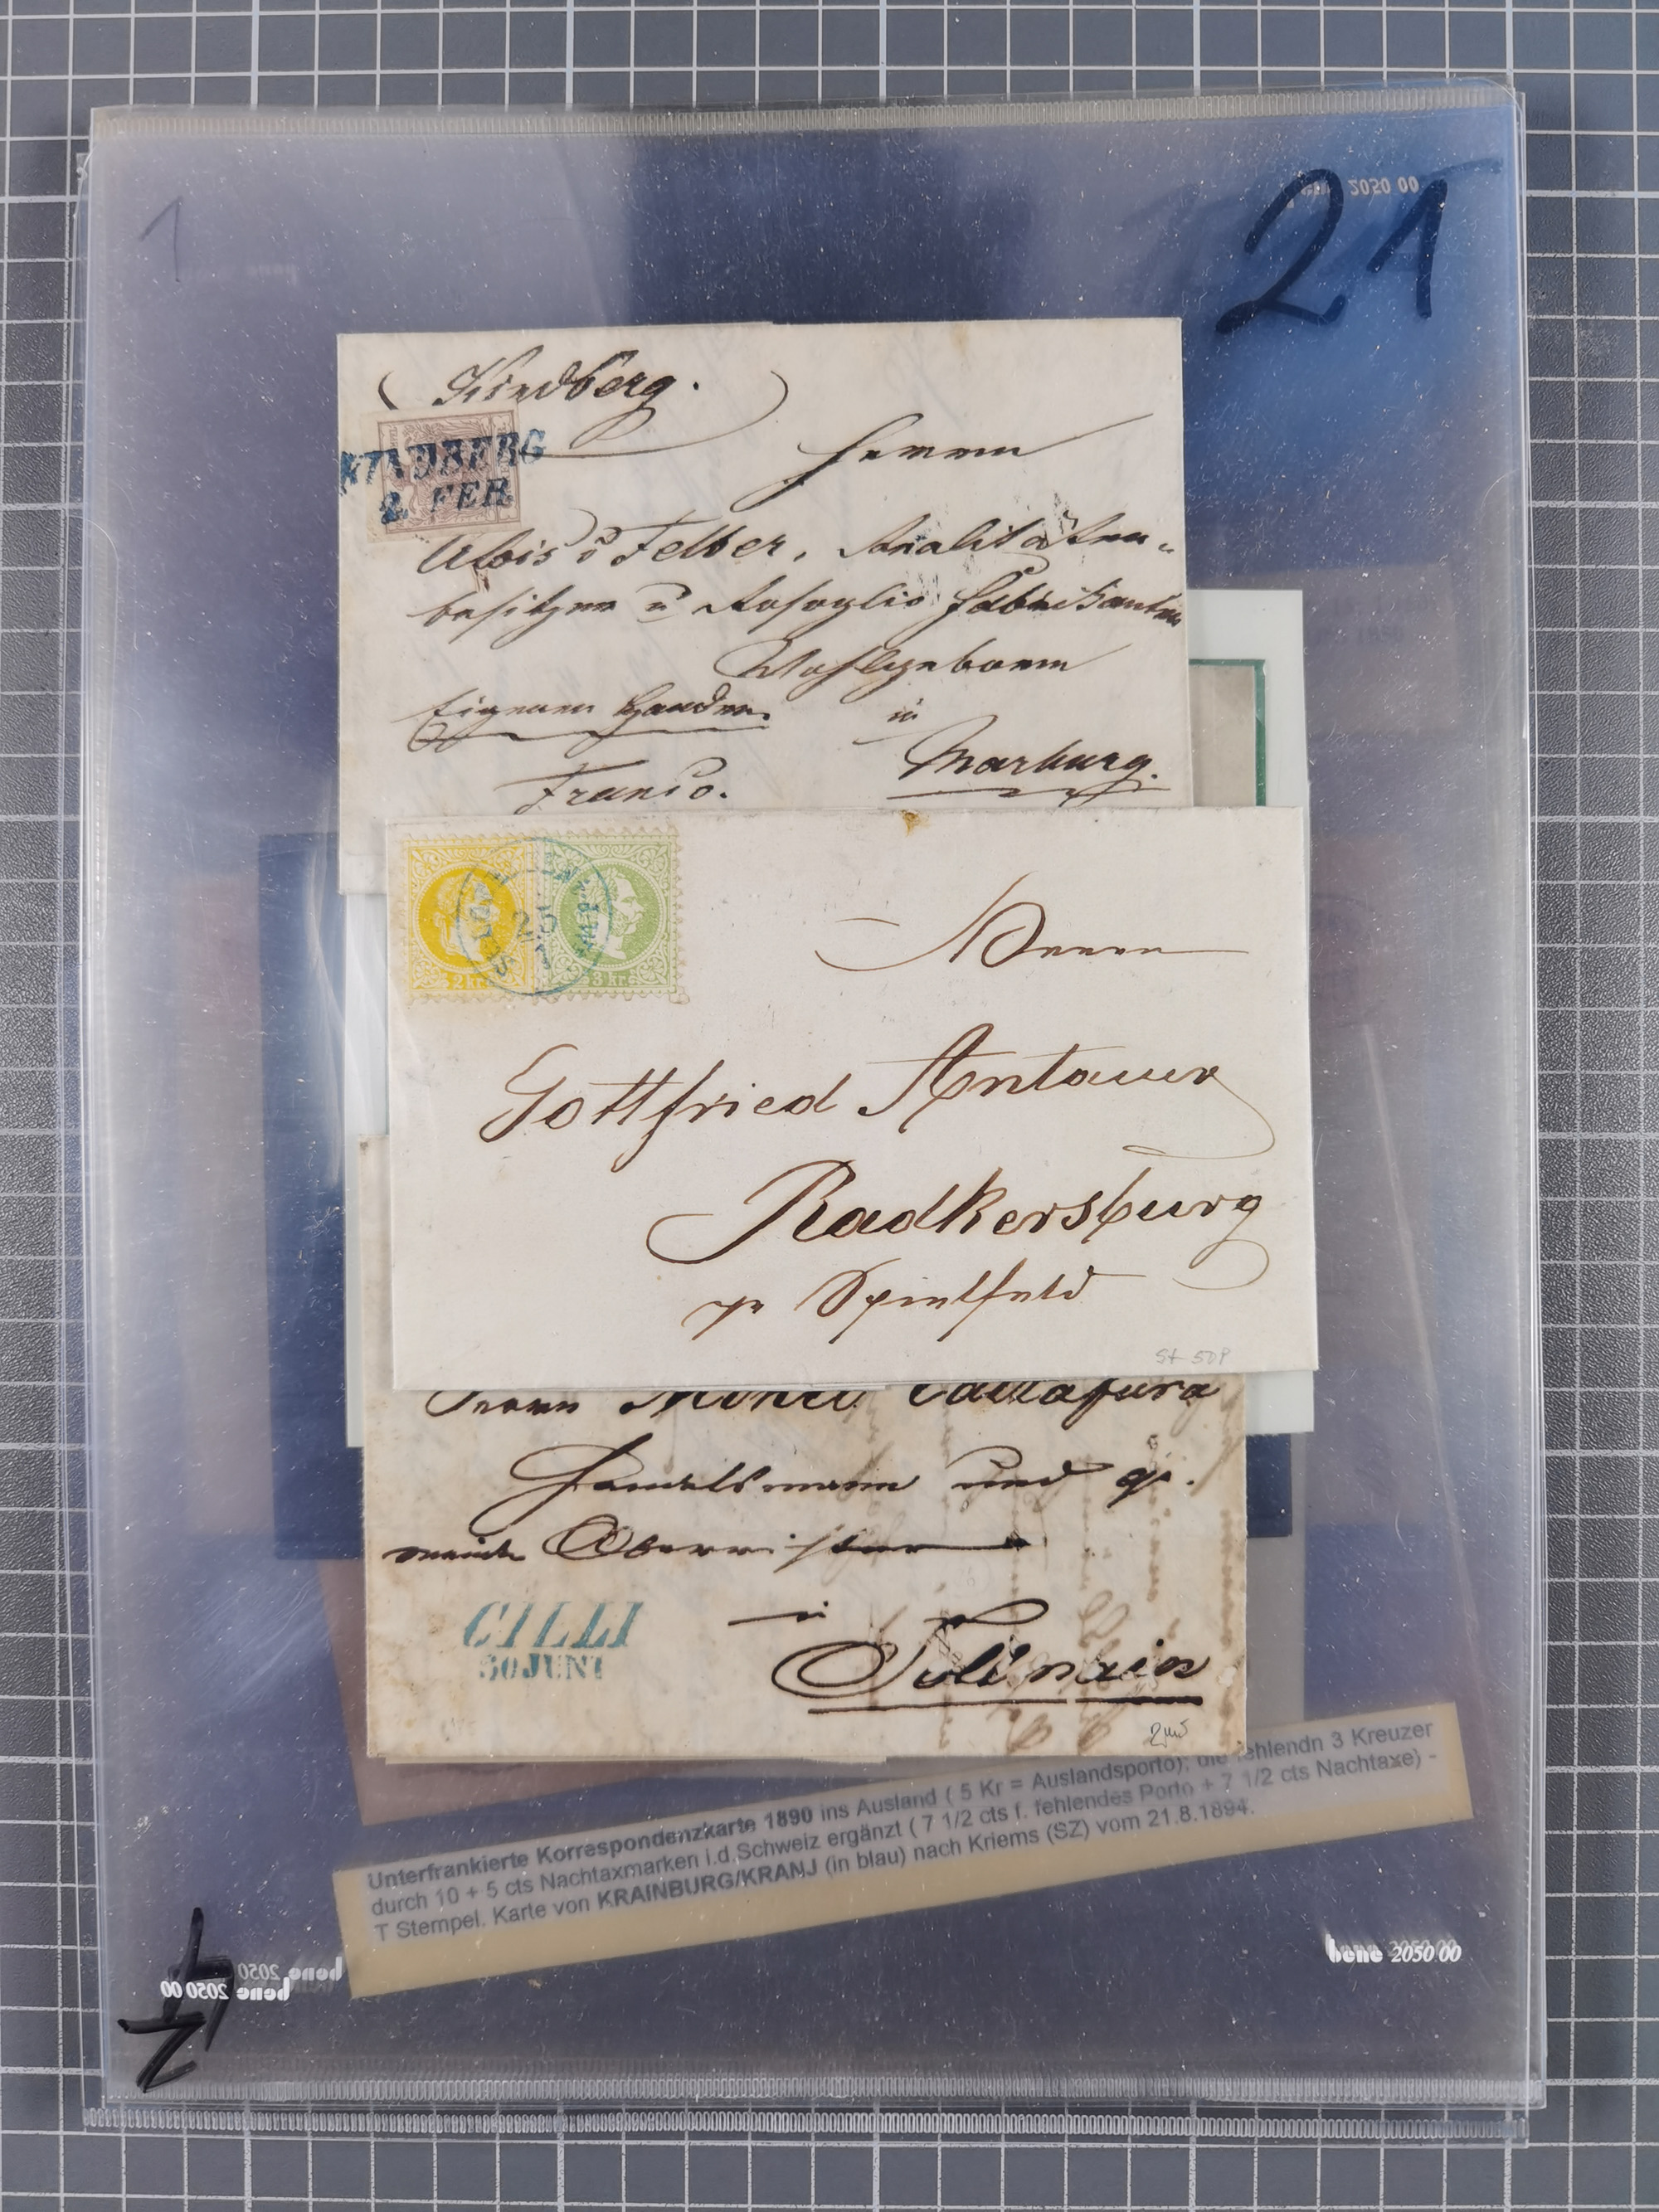 21
1
2050 00
Kindberg.
KINDBERG
2. FEB.
Herrn
Alois v Felber, Realitäten-
besitzer u Rosoglio Fabrikanten
Wohlgeboren
Eigenen Handen. in
Franco. Marburg.
2 kr. 3 kr.
25
Herrn
Gottfried Antauer
Radkersburg
pr Spielfeld
St 50P
Herrn
Handelsmann und ge-
meinde
CILLI
30 JUNI
in
Tollmein
Unterfrankierte Korrespondenzkarte 1890 ins Ausland ( 5 Kr = Auslandsporto); die fehlendn 3 Kreuzer
durch 10 + 5 cts Nachtaxmarken i.d.Schweiz ergänzt ( 7 1/2 cts f. fehlendes Porto + 7 1/2 cts Nachtaxe) -
T Stempel. Karte von KRAINBURG/KRANJ (in blau) nach Kriems (SZ) vom 21.8.1894.
bene 2050 00
bene 2050 00
bene 2050